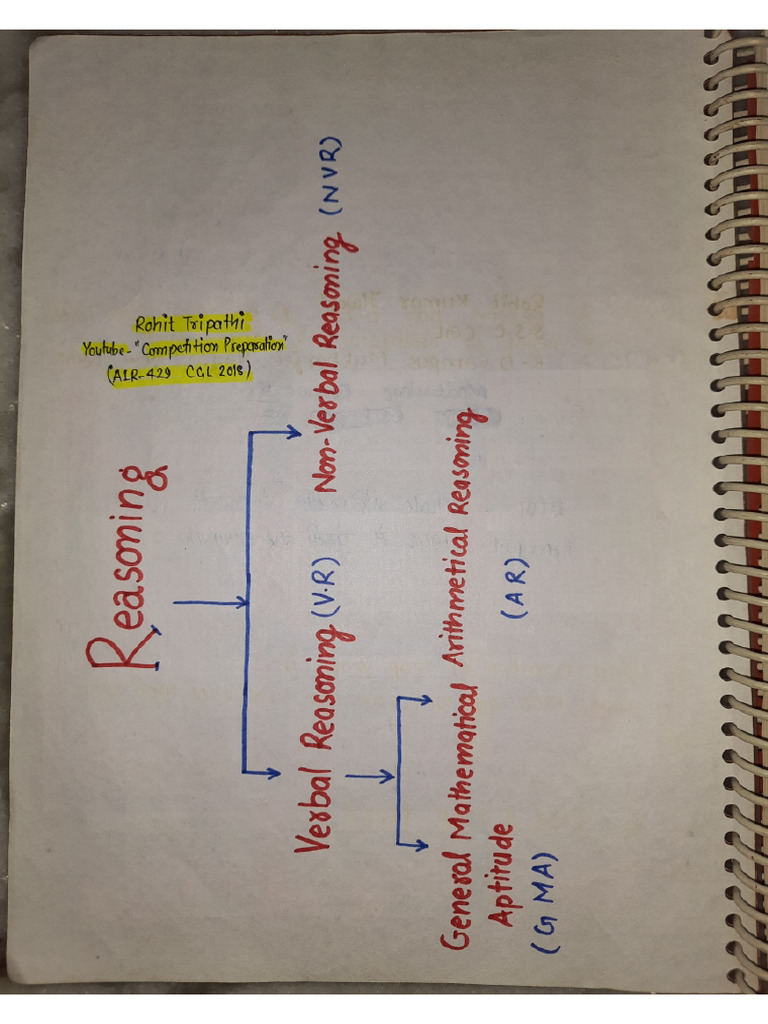 Reasoning
Rohit Tripathi
Youtube- "Competition Preparation"
(AIR-429 CGL 2018)
Verbal Reasoning (V.R)
Non-Verbal Reasoning (NVR)
General Mathematical
Aptitude
(GMA)
Arithmetical Reasoning
(AR)